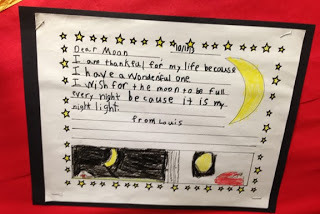 Dear Moon
I am thankful for my life because
I have a wonderful one
I wish for the moon to be full
every night because it is my
night light.
from Louis